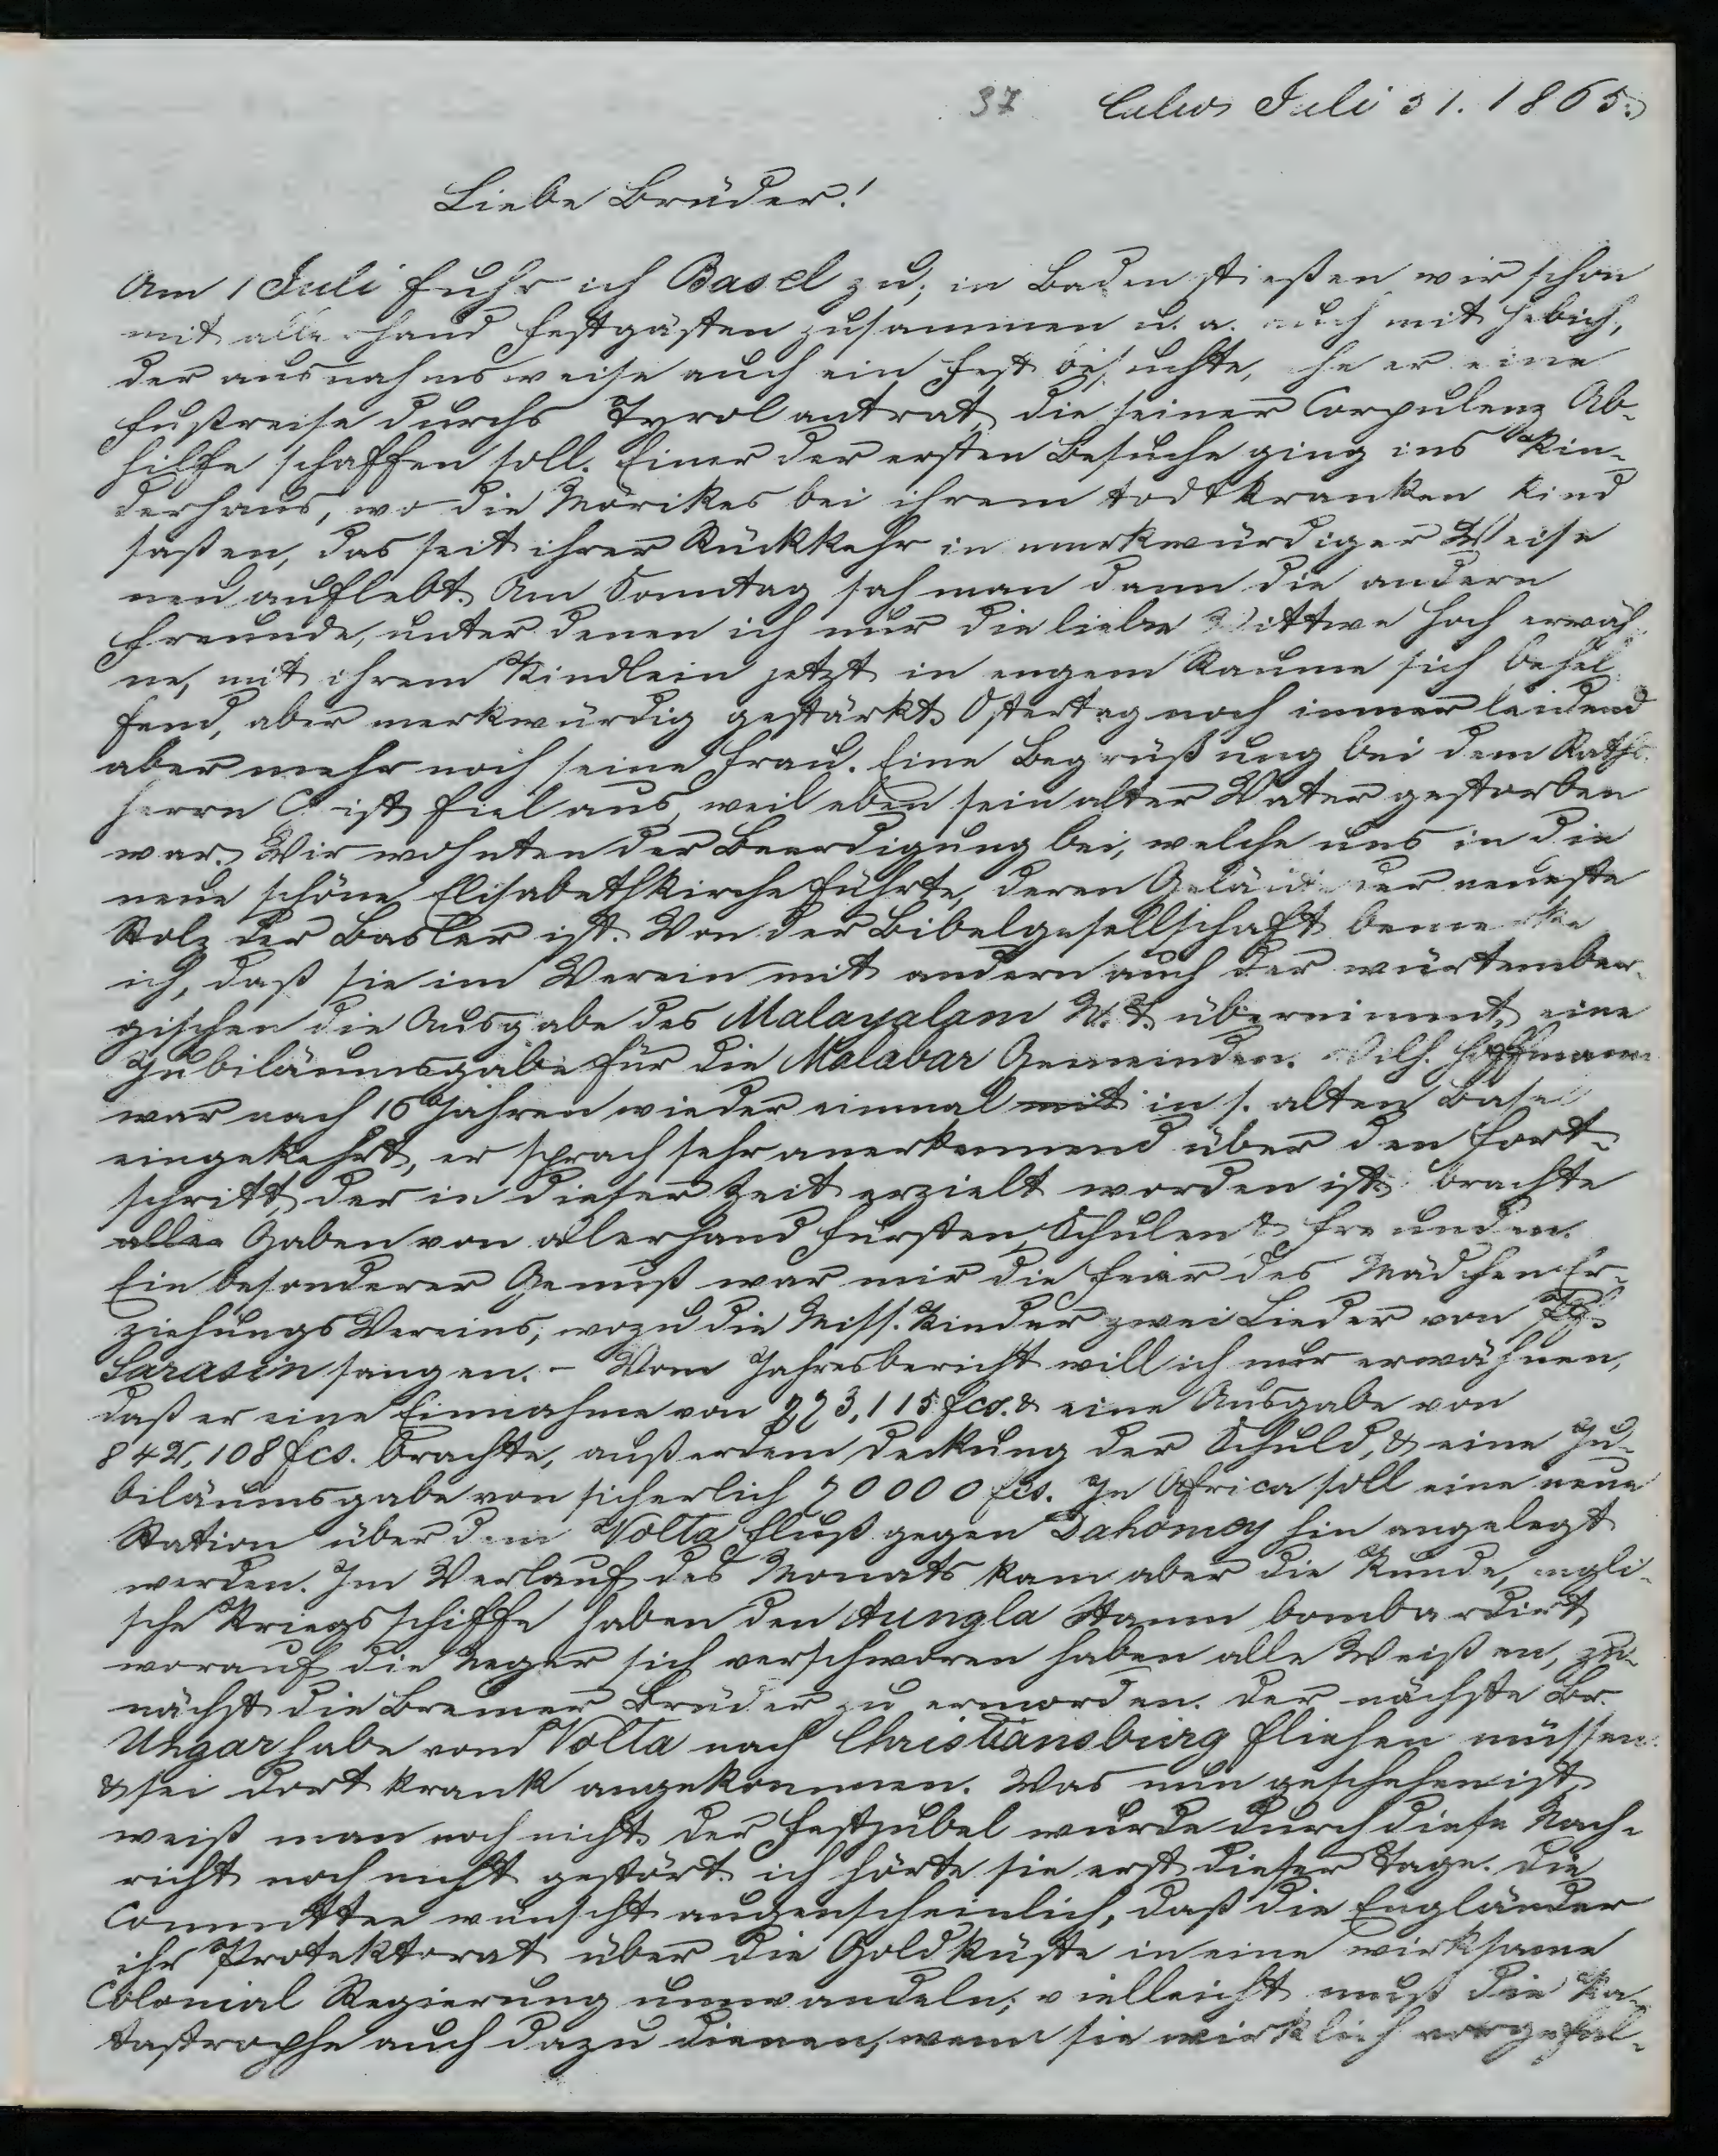 37 Calw Juli 31. 1865.
Liebe Brüder!
Am 1 Juli fuhr ich Basel zu; in Baden stießen wir schon
mit allerhand Festgästen zusammen u. a. auch mit Hebich,
der ausnahmsweise auch ein Fest besuchte, ehe er eine
Fußreise durchs Tyrol antrat, die seiner Corpulenz Ab-
hilfe schaffen soll. Einer der ersten Besuche ging ins Kin-
derhaus, wo die Mörikes bei ihrem todtkranken Kind
saßen, das seit ihrer Rückkehr in merkwürdiger Weise
neu auflebt. Am Sonntag sah man dann die andern
Freunde, unter denen ich nur die liebe Wittwe Hoch erwäh-
ne, mit ihrem Kindlein jetzt in engem Raume sich behel-
fend, aber merkwürdig gestärkt. Ostertag noch immer leidend
aber mehr noch seine Frau. Eine Begrüßung bei dem Raths-
herrn Christ fiel aus, weil eben sein alter Vater gestorben
war. Wir wohnten der Beerdigung bei, welche uns in die
neue schöne Elisabethkirche führte, deren Geläute der neueste
Stolz der Basler ist. Von der Bibelgesellschaft bemerke
ich, daß sie im Verein mit andern auch der würtember-
gischen die Ausgabe des Malayalam N. T. übernimmt, eine
Jubiläumsgabe für die Malabar Gemeinden. Wilh. Hoffmann
war nach 15 Jahren wieder einmal mit in s. alten Basel
eingekehrt, er sprach sehr anerkennend über den Fort-
schritt, der in dieser Zeit erzielt worden ist, brachte
alle Gaben von allerhand Fürsten, Schulen & Freunden.
Ein besonderer Genuß war mir die Feier des Mädchen Er-
ziehungs Vereins, wozu die Miss. Kinder zwei Lieder von
Sarasin sangen. - Vom Jahresbericht will ich nur erwähnen,
daß er eine Einnahme von 773,115 fcs. & eine Ausgabe von
842,108 fcs. brachte, außerdem Deckung der Schuld, & eine Ju-
biläumsgabe von sicherlich 70000 fcs. In Africa soll eine neue
Station über dem Volta Fluß gegen Dahomey hin angelegt
werden. Im Verlauf des Monats kam aber die Kunde, engli-
sche Kriegsschiffe haben den Aungla Stamm bombardirt,
worauf die Neger sich verschworen haben alle Weißen, zu-
nächst die Bremer Brüder zu ermorden. Der nächste Br.
Ungar habe vom Volta nach Christiansburg fliehen müssen
& sei dort krank angekommen. Was nun geschehen ist,
weiß man noch nicht. Der Festjubel wurde durch diese Nach-
richt noch nicht gestört. ich hörte sie erst dieser Tage. Die
Committee wünscht augenscheinlich, daß die Engländer
ihr Protektorat über die Goldküste in eine wirksame
Colonial Regierung umwandeln; vielleicht muß die Ka-
tastrophe auch dazu dienen, wenn sie wirklich vorgefal-